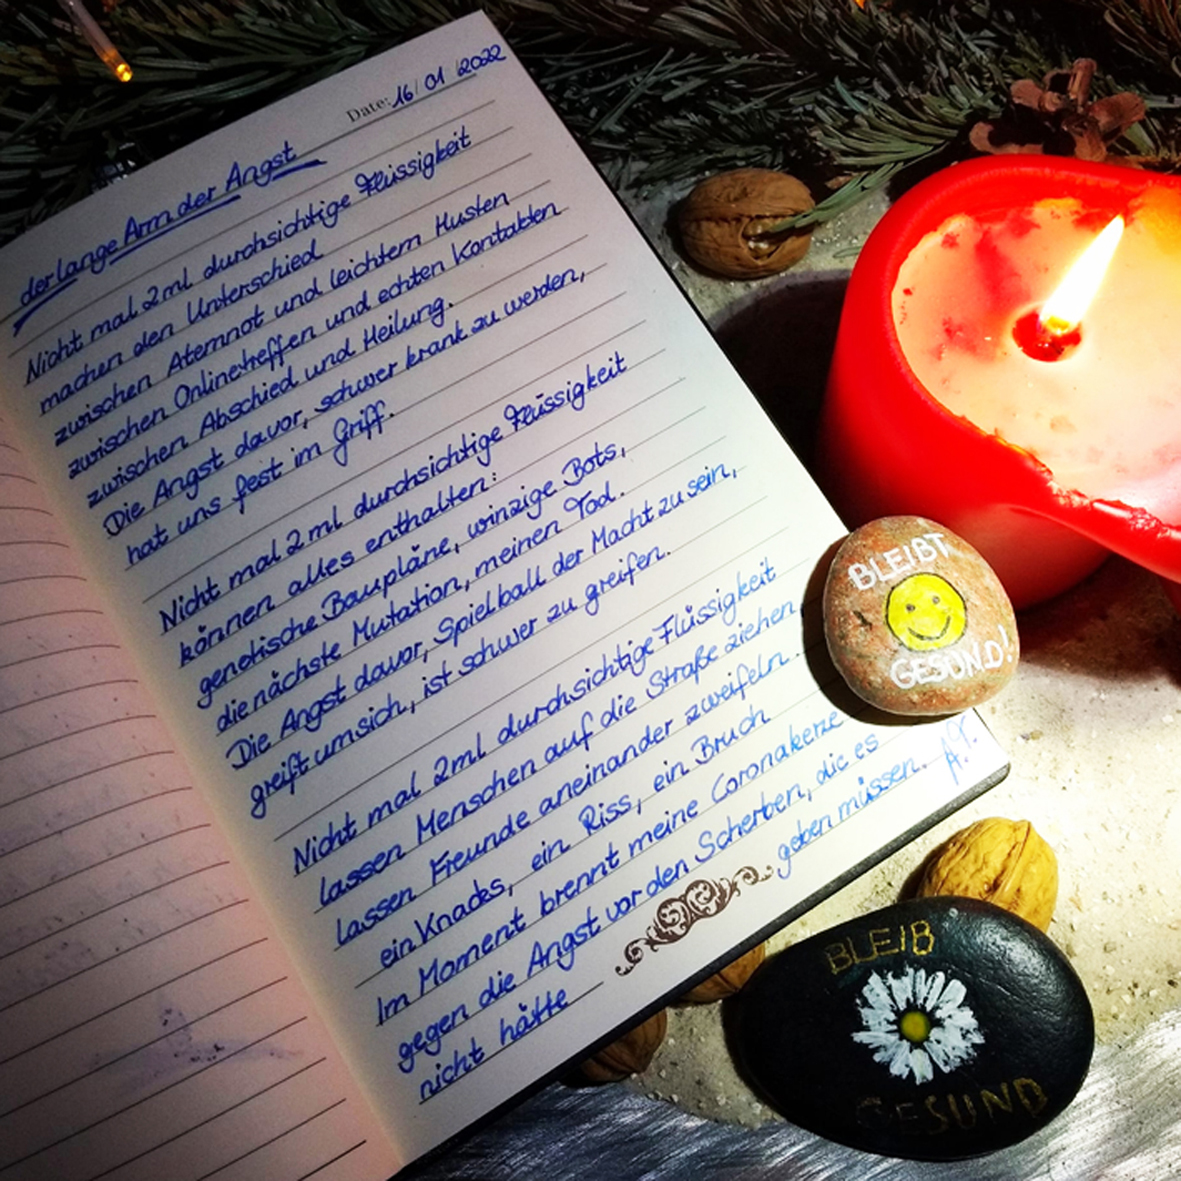 Date: 16/ 01 /2022
der lange Arm der Angst
Nicht mal 2ml durchsichtige Flüssigkeit
machen den Unterschied
zwischen Atemnot und leichtem Husten
zwischen Onlinetreffen und echten Kontakten
zwischen Abschied und Heilung.
Die Angst davor, schwer krank zu werden,
hat uns fest im Griff.
Nicht mal 2ml durchsichtige Flüssigkeit
können alles enthalten:
genetische Baupläne, winzige Bots,
die nächste Mutation, meinen Tod.
Die Angst davor, Spielball der Macht zu sein,
greift um sich, ist schwer zu greifen.
Nicht mal 2ml durchsichtige Flüssigkeit
lassen Menschen auf die Straße ziehen,
lassen Freunde aneinander zweifeln.
ein Knacks, ein Riss, ein Bruch
Im Moment brennt meine Coronakerze
gegen die Angst vor den Scherben, die es
nicht hätte geben müssen. A.T.
BLEIBT
GESUND!
BLEIB
GESUND